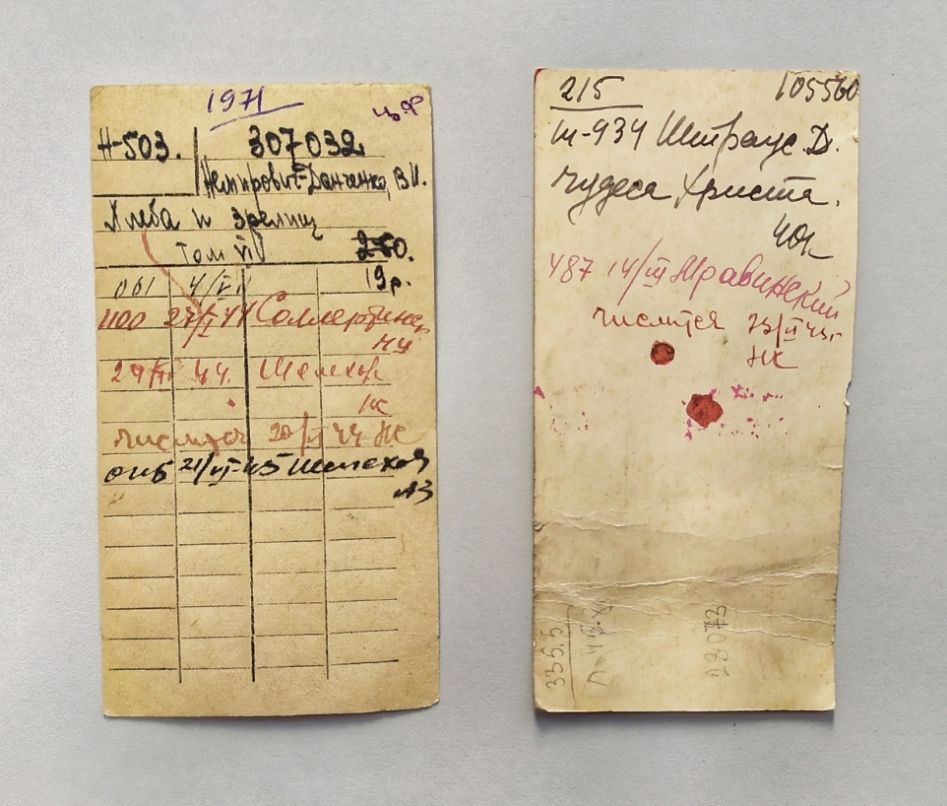 1971
ЦФ
Н-503. 307032
Немирович-Данченко, В.И.
Хлеба и зрелищ
Том VI
2-50.
19р.
061 4/VII
1100 27/I 44 Соллертинск
НИ
44. Шелехов
НК
числится 20/VI 44 НК
21/VI-45 Шелехов
АЗ
215 105560
Ш-934 Штраус Д.
Чудеса Христа.
40к
487 14/III Мравинский
числится 23/VI 44г
НК
335.5
28073